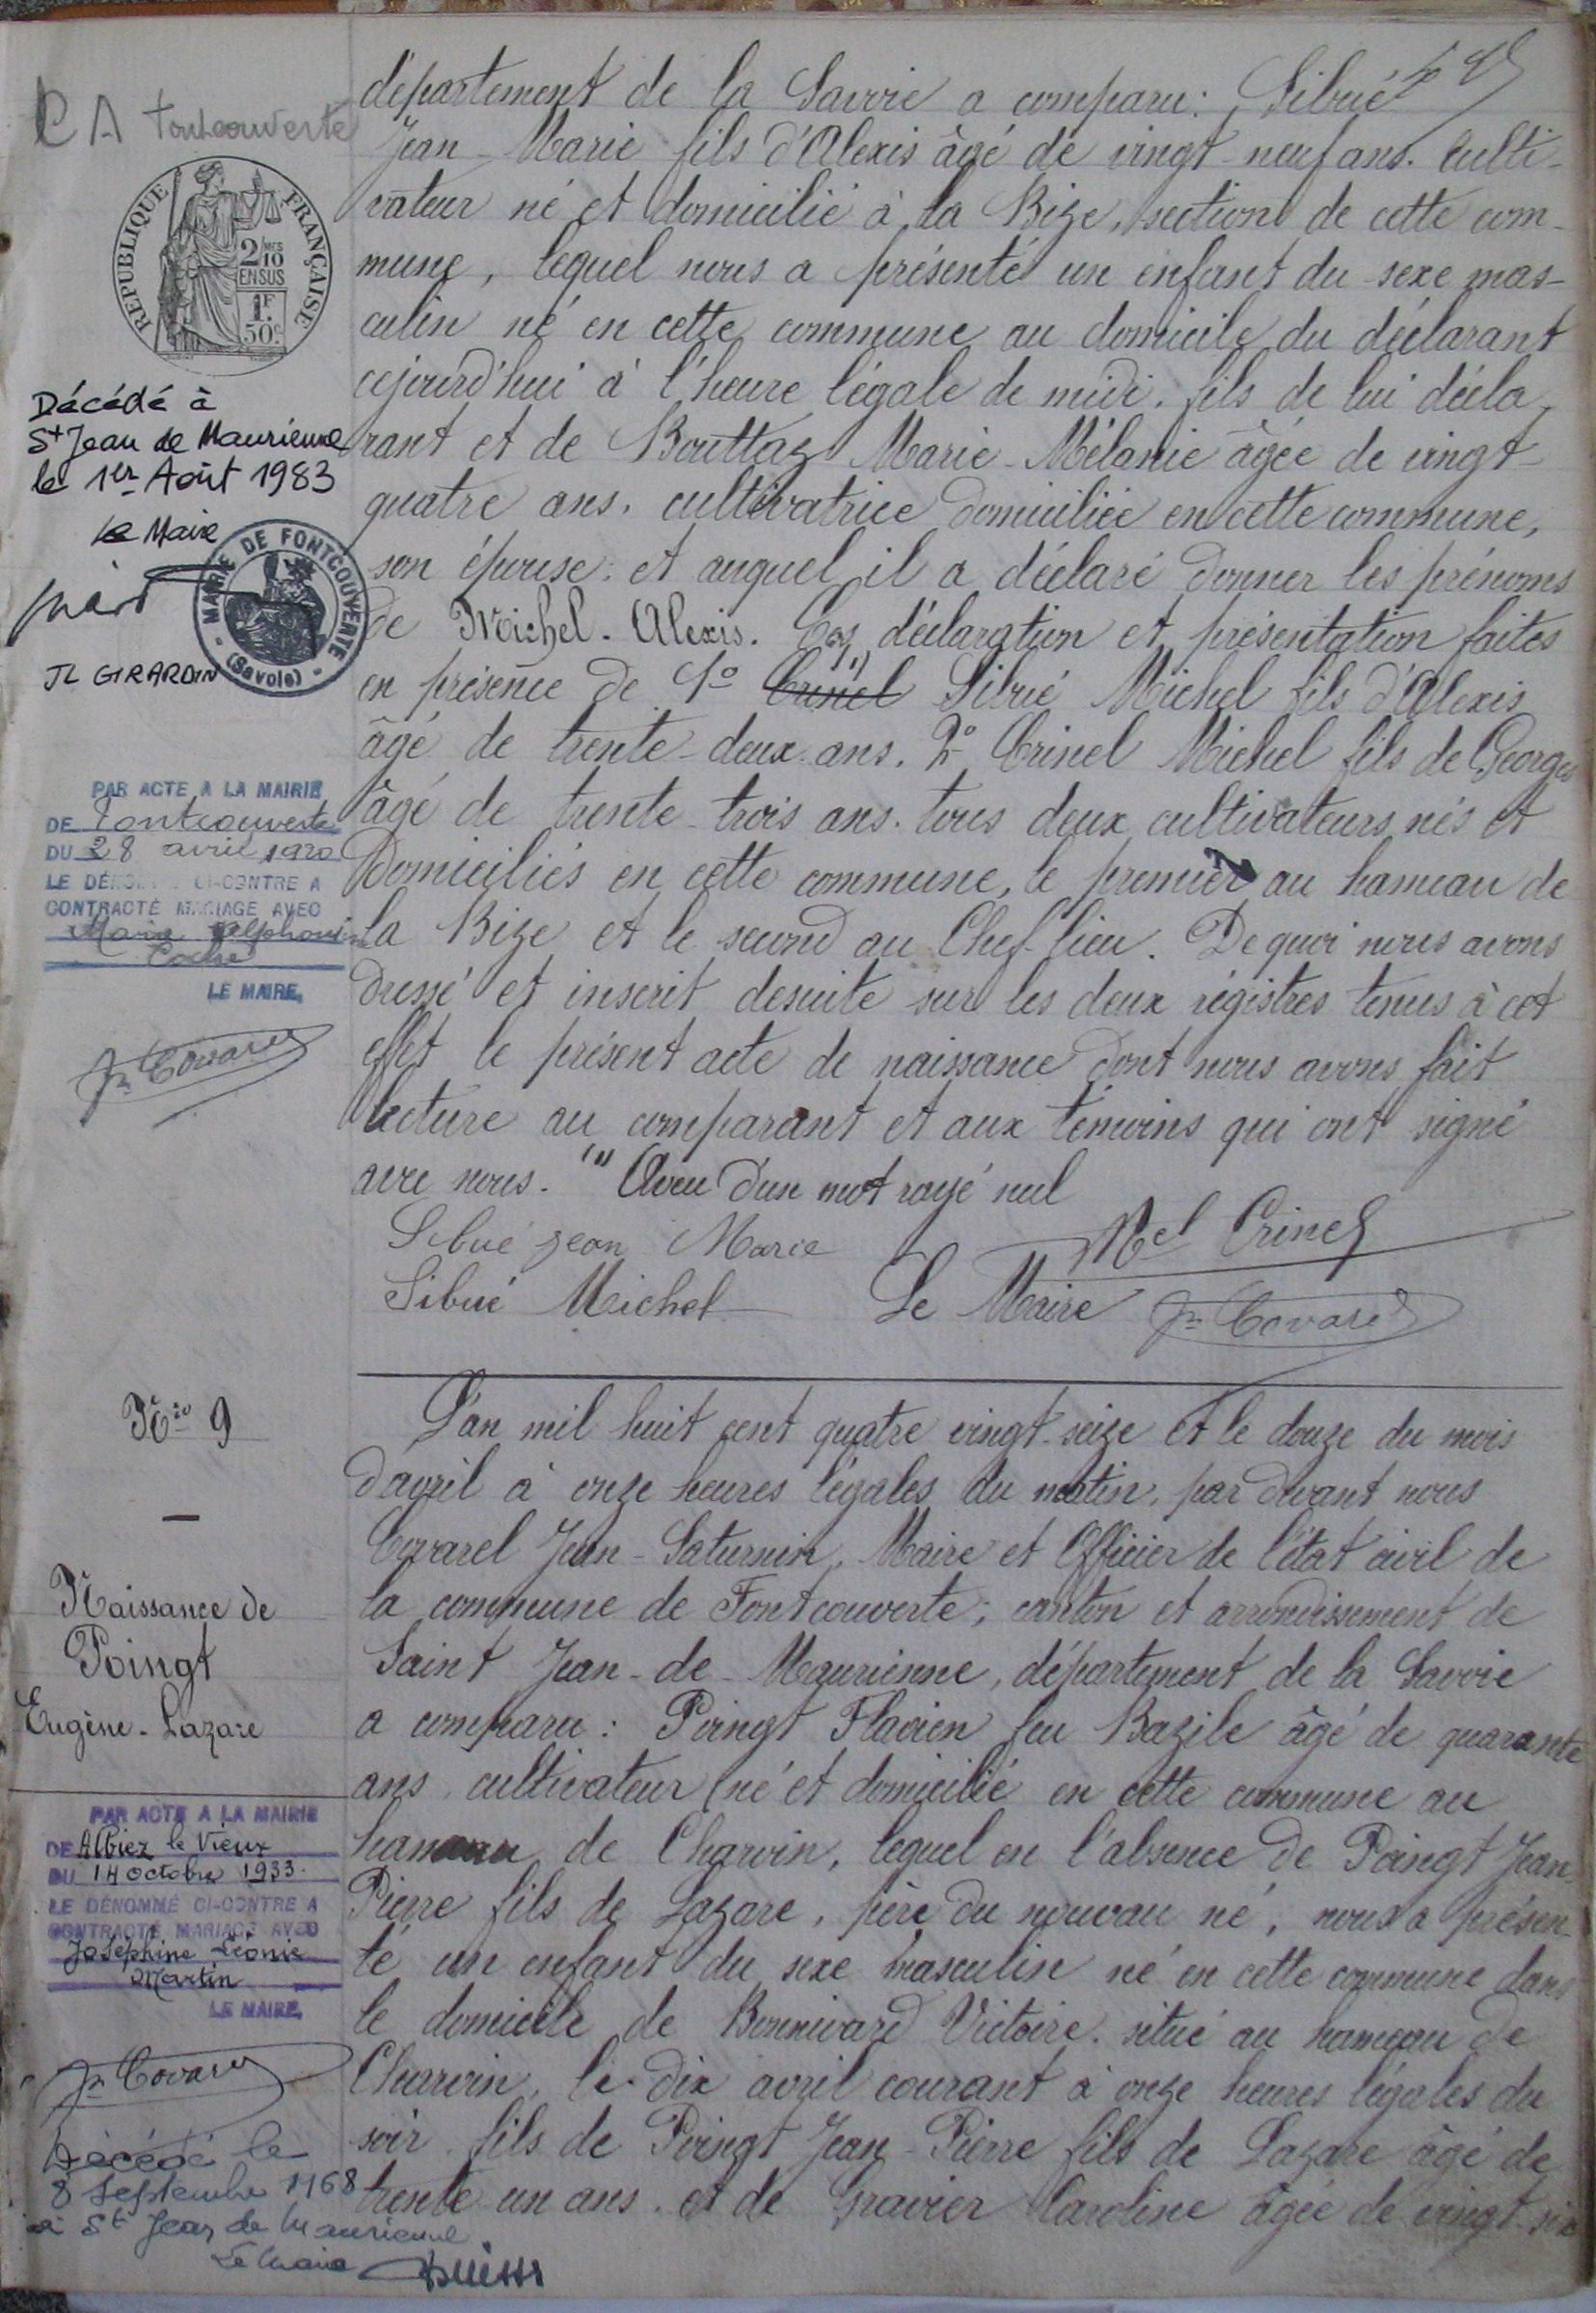 C A Fontcouverte
REPUBLIQUE FRANÇAISE
2/10 MES
EN SUS
1F
50c
Décédé à
St Jean de Maurienne
le 1er Août 1983
Le Maire
MAIRIE DE FONTCOUVERTE
(Savoie)
JL GIRARDIN
PAR ACTE A LA MAIRIE
DE Fontcouverte
DU 28 avril 1920
LE DÉNOMMÉ CI-CONTRE A
CONTRACTÉ MARIAGE AVEC
Marie Alphonsine
LE MAIRE,
Jn Covarel
département de la Savoie a comparu: Sibué
Jean-Marie fils d'Alexis âgé de vingt-neuf ans. culti-
vateur né et domicilié à la Bize, section de cette com-
mune, lequel nous a présenté un enfant du sexe mas-
culin né en cette commune au domicile du déclarant
cejourd'hui à l'heure légale de midi. fils de lui décla-
rant et de Bouttaz Marie-Mélanie âgée de vingt-
quatre ans. cultivatrice domiciliée en cette commune,
son épouse: et auquel il a déclaré donner les prénoms
de Michel-Alexis. Ces déclaration et présentation faites
en présence de 1o Crinel (1) Sibué Michel fils d'Alexis
âgé de trente-deux ans. 2o Crinel Michel fils de Georges
âgé de trente-trois ans. tous deux cultivateurs nés et
domiciliés en cette commune, le premier au hameau de
la Bize et le second au Chef-lieu. De quoi nous avons
dressé et inscrit desuite sur les deux régistres tenus à cet
effet le présent acte de naissance dont nous avons fait
lecture au comparant et aux témoins qui ont signé
avec nous. (1) Aveu d'un mot rayé nul
Sibué jean Marie Mel Crinel
Sibué Michel Le Maire Jn Covarel
No 9
Naissance de
Poingt
Eugène-Lazare
PAR ACTE A LA MAIRIE
DE Albiez le Vieux
DU 14 octobre 1933.
LE DÉNOMMÉ CI-CONTRE A
CONTRACTÉ MARIAGE AVEC
Joséphine Léonie
Martin
LE MAIRE,
Jn Covarel
Décédé le
8 septembre 1968
à St Jean de Maurienne
Le Maire
L'an mil huit cent quatre vingt-seize et le douze du mois
d'avril à onze heures légales du matin, par devant nous
Covarel Jean-Saturnin, Maire et Officier de l'état civil de
la commune de Fontcouverte; canton et arrondissement de
Saint Jean-de-Maurienne, département de la Savoie
a comparu: Poingt Flavien feu Bazile âgé de quarante
ans. cultivateur né et domicilié en cette commune au
hameau de Charvin, lequel en l'absence de Poingt Jean-
Pierre fils de Lazare, père du nouveau né, nous a présen-
té un enfant du sexe masculin né en cette commune dans
le domicile de Bonnivard Victoire. situé au hameau de
Charvin, le dix avril courant à onze heures légales du
soir. fils de Poingt Jean-Pierre fils de Lazare âgé de
trente-un ans. et de Gravier Caroline âgée de vingt-six